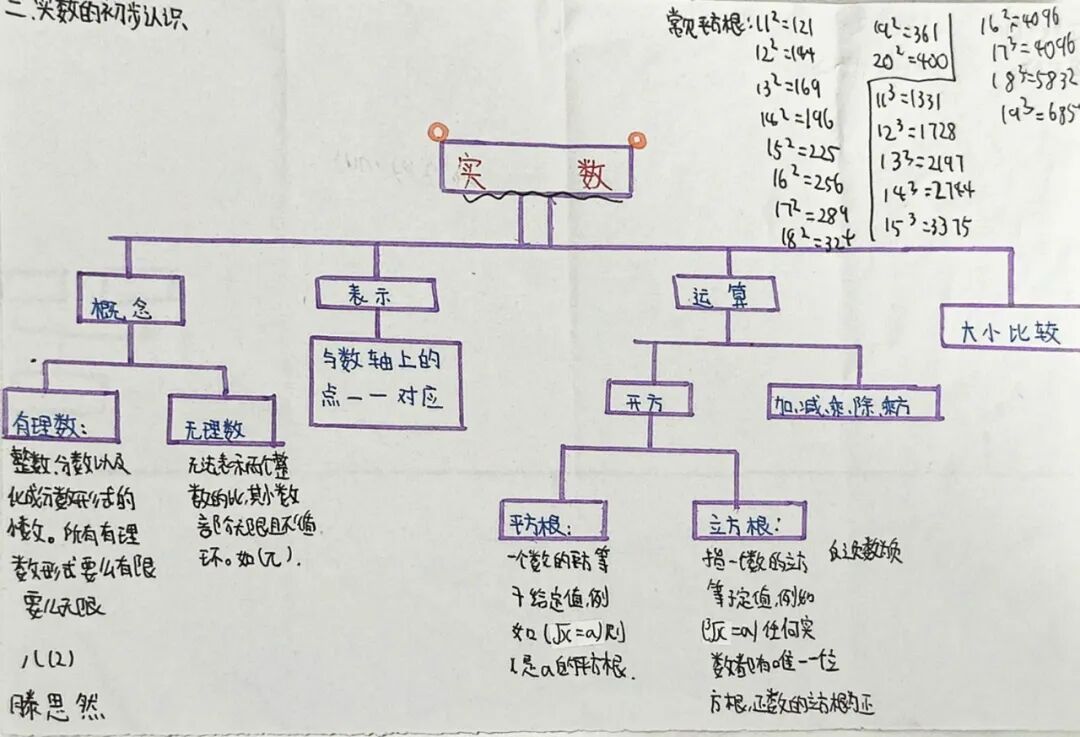 二、实数的初步认识
常见平方根:11²=121
12²=144
13²=169
14²=196
15²=225
16²=256
17²=289
18²=324
19²=361
20²=400
11³=1331
12³=1728
13³=2197
14³=2744
15³=3375
16²=4096
17³=4096
18³=5832
19³=685
实 数
概念
表示
运算
大小比较
与数轴上的
点一一对应
开方
加、减、乘、除、乘方
有理数:
整数、分数以及
化成分数形式的
小数。所有有理
数形式要么有限
要么无限
无理数
无法表示两个整
数的比,其小数
部分无限且不循
环。如(π).
平方根:
一个数的平方等
于给定值,例
如(√x=a)则
x是a的平方根.
立方根:
指一个数的立方
等于定值,例如
(³√x=a)任何实
数都有唯一立
方根,正数的立方根为正
负数为负
八(2)
滕思然